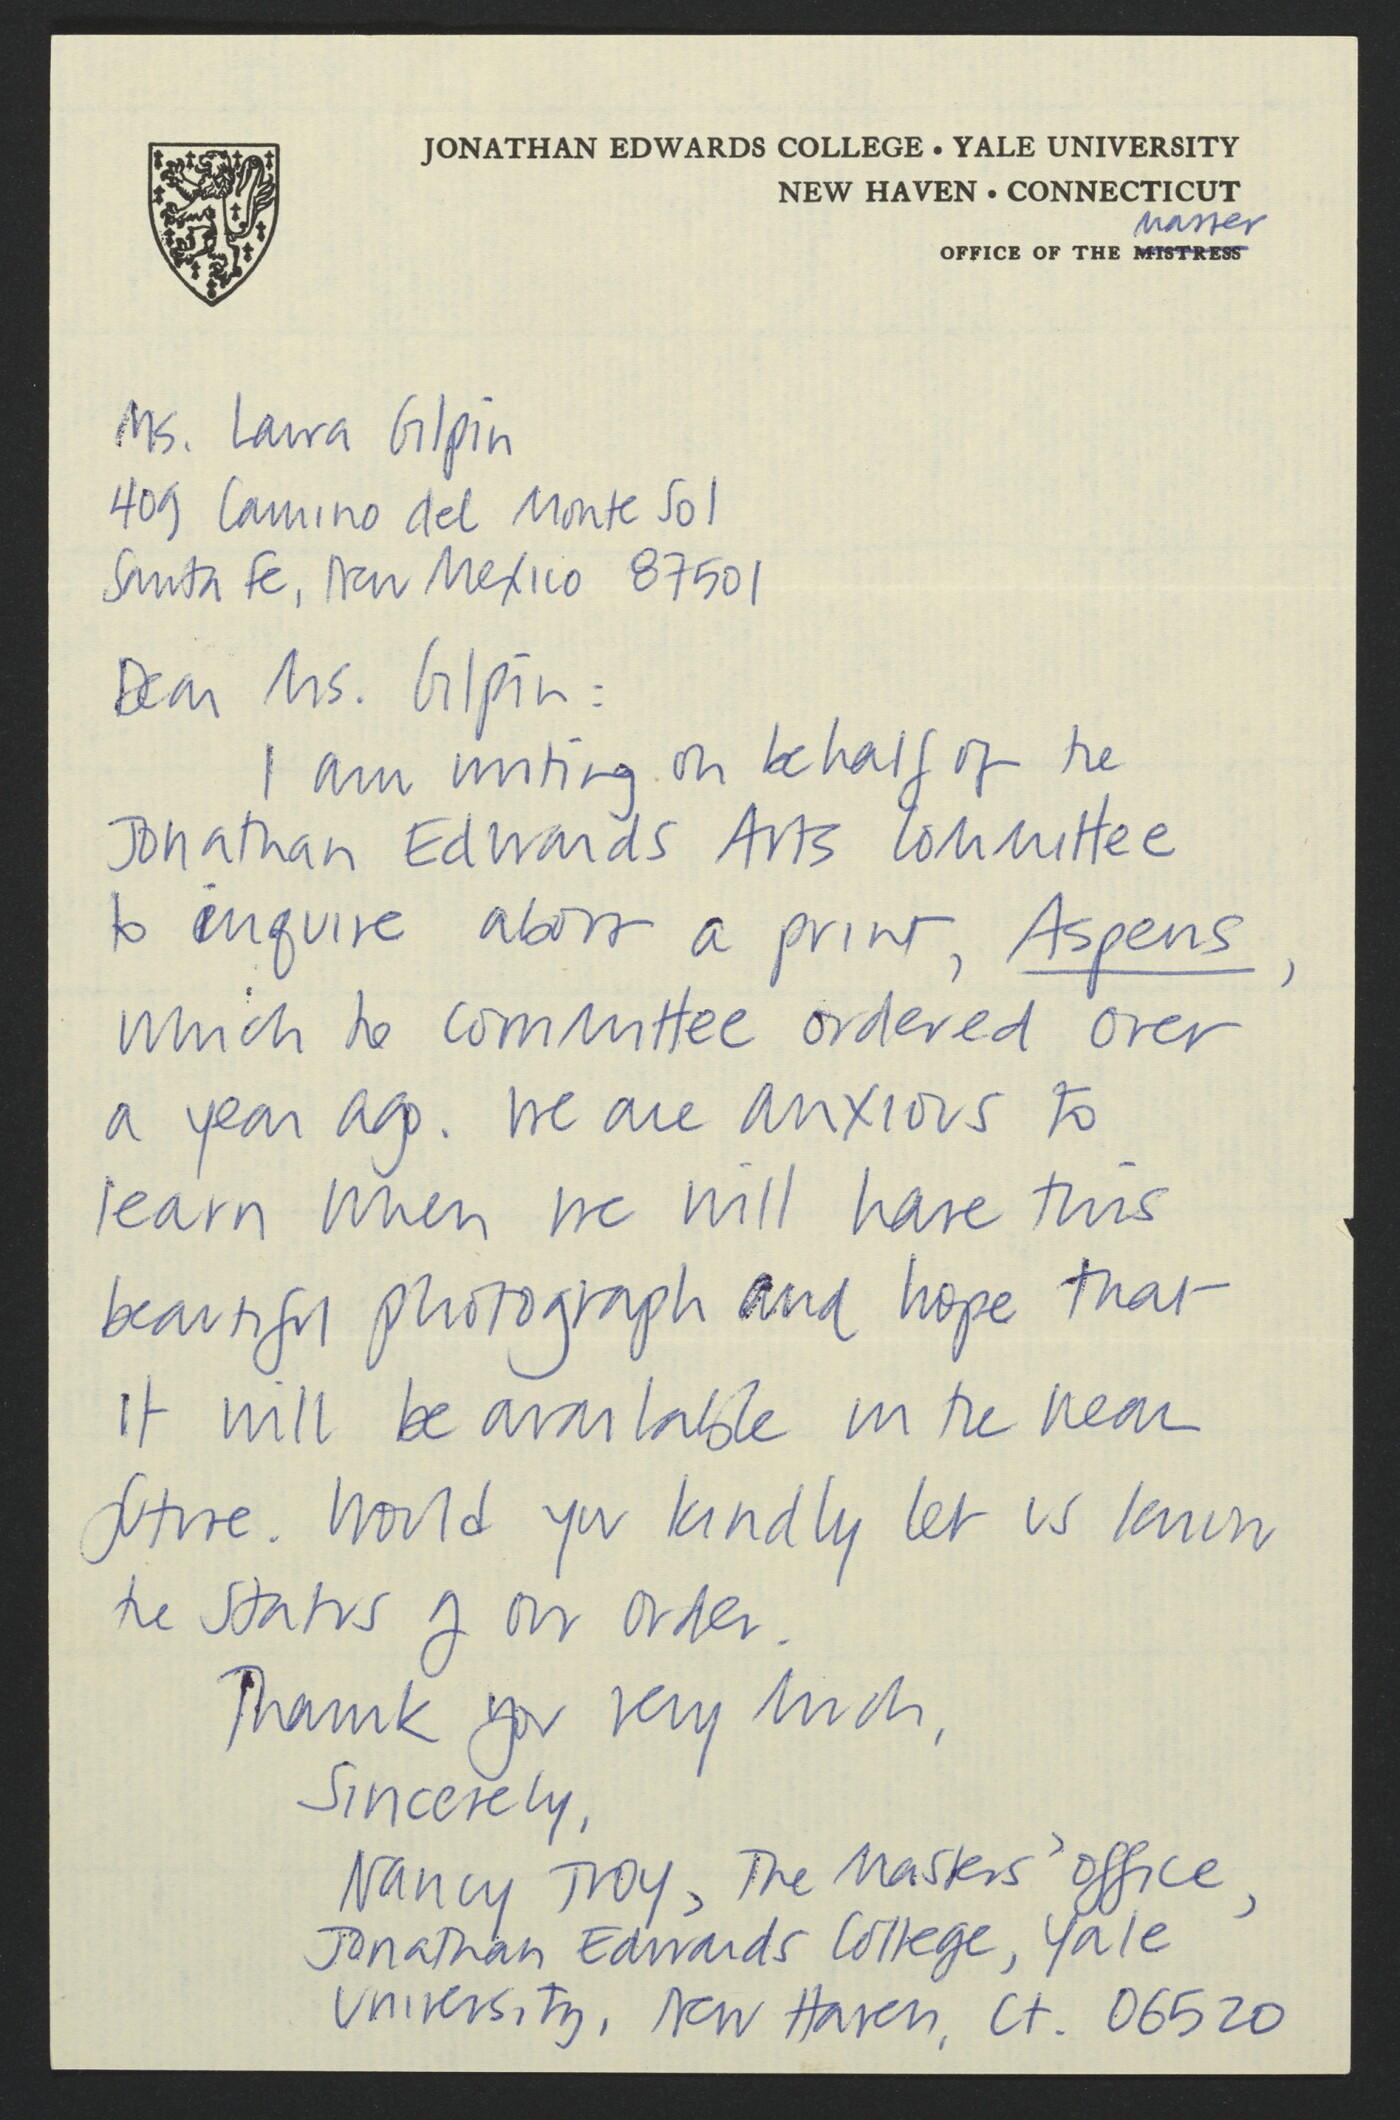 JONATHAN EDWARDS COLLEGE • YALE UNIVERSITY
NEW HAVEN • CONNECTICUT
Master
OFFICE OF THE MISTRESS
Ms. Laura Gilpin
409 Camino del Monte Sol
Santa Fe, New Mexico 87501
Dear Ms. Gilpin:
I am writing on behalf of the
Jonathan Edwards Arts Committee
to inquire about a print, Aspens,
which the committee ordered over
a year ago. We are anxious to
learn when we will have this
beautiful photograph and hope that
it will be available in the near
future. Would you kindly let us know
the status of our order.
Thank you very much,
Sincerely,
Nancy Troy, The Masters' office,
Jonathan Edwards College, Yale
University, New Haven, Ct. 06520